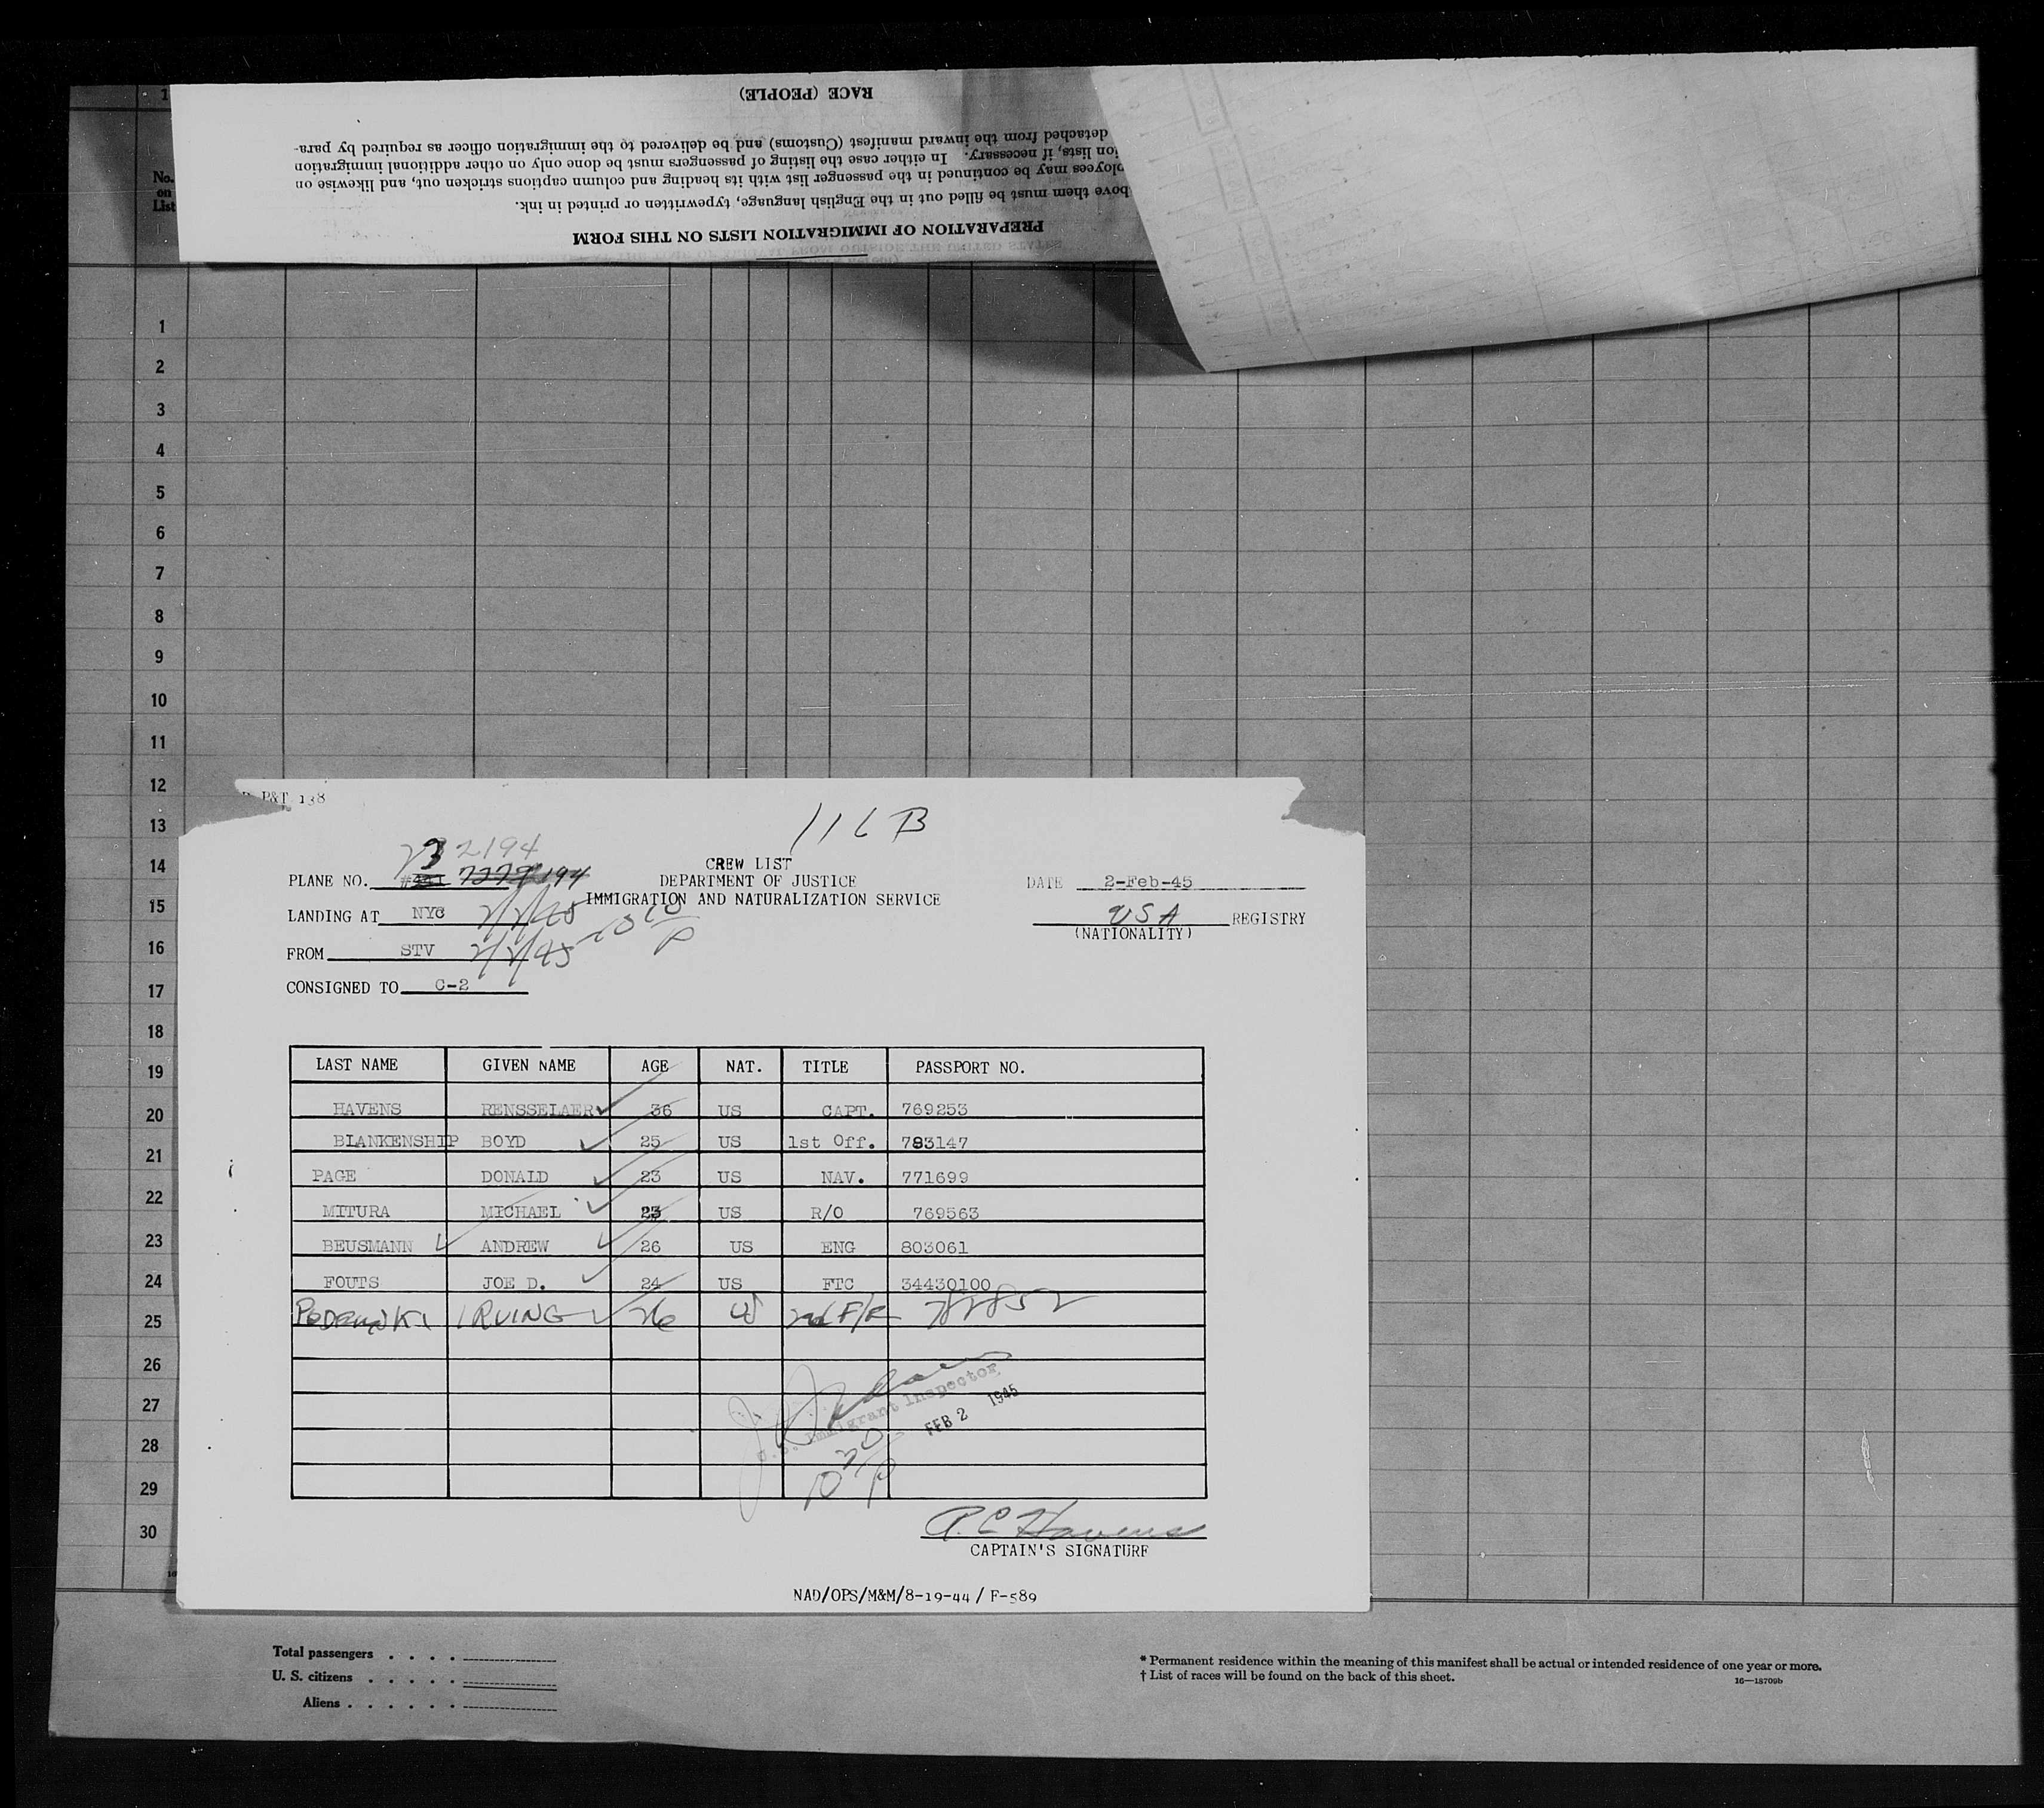 1
RACE (PEOPLE)
detached from the inward manifest (Customs) and be delivered to the immigration officer as required by para-
ion lists, if necessary. In either case the listing of passengers must be done only on other additional immigration
ployees may be continued in the passenger list with its heading and column captions stricken out, and likewise on
bove them must be filled out in the English language, typewritten or printed in ink.
PREPARATION OF IMMIGRATION LISTS ON THIS FORM
No.
on
List
1
2
3
4
5
6
7
8
9
10
11
12
13
14
15
16
17
18
19
20
21
22
23
24
25
26
27
28
29
30
P&T 138
116 B
232194
CREW LIST
PLANE NO. 194 DEPARTMENT OF JUSTICE DATE 2-Feb-45
LANDING AT NYC 2/2/45 IMMIGRATION AND NATURALIZATION SERVICE USA REGISTRY
(NATIONALITY)
FROM STV 2/2/45 1010 P
CONSIGNED TO C-2
LAST NAME GIVEN NAME AGE NAT. TITLE PASSPORT NO.
HAVENS RENSSELAER 36 US CAPT. 769253
BLANKENSHIP BOYD 25 US 1st Off. 783147
PAGE DONALD 23 US NAV. 771699
MITURA MICHAEL 23 US R/O 769563
BEUSMANN ANDREW 26 US ENG 803061
FOUTS JOE D. 24 US FTC 34430100
IRVING 26 US 2nd F/R 782852
U.S. Immigrant Inspector
FEB 2 1945
10 30 P
R.C. Havens
CAPTAIN'S SIGNATURE
NAD/OPS/M&M/8-19-44 / F-589
Total passengers . . . .
U. S. citizens . . . . .
Aliens . . . . . .
* Permanent residence within the meaning of this manifest shall be actual or intended residence of one year or more.
† List of races will be found on the back of this sheet.
16—18709b